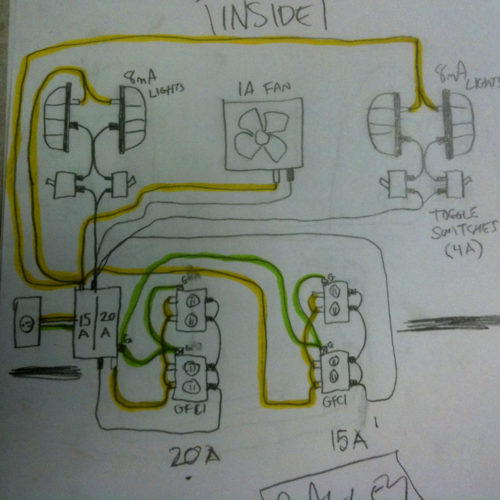 INSIDE
8mA
LIGHTS
1A FAN
8mA
LIGHTS
TOGGLE
SWITCHES
(4A)
15
A
20
A
G
G
G
G
G
GFCI
GFCI
20A
15A